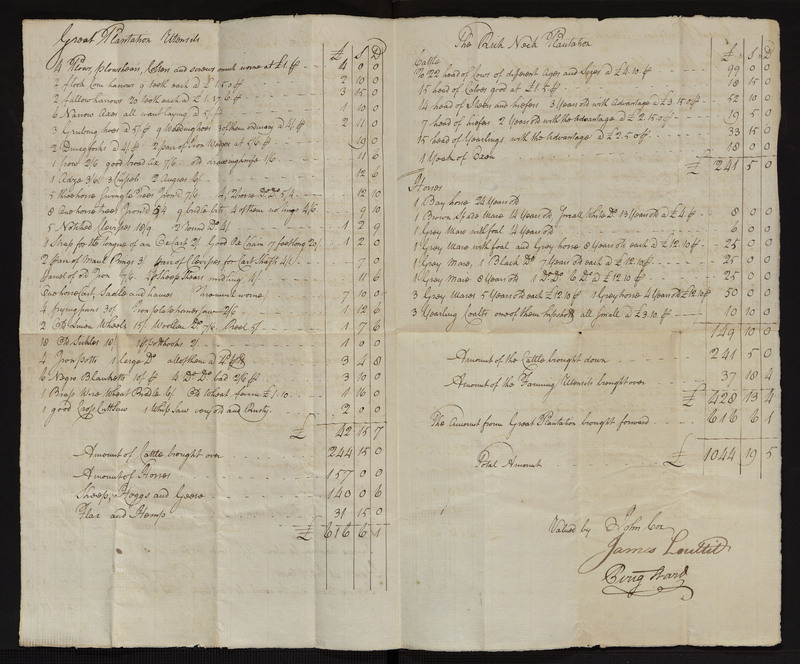 Great Plantation Utensils
£ S D
4 Plows, plowshears, Colters and screws much worne at £1 pr 4 0 0
2 flock Corn harrows 9 teeth each @ £1.5.0 pr 2 10 0
2 fallow harrows 20 teeth each @ £1.17.6 pr 3 15 0
6 Narrow Axes all want laying @ 5/ pr 1 10 0
3 Grubing hoes @ 5/ pr 9 Weeding hoes 3 of them ordinary @ 4/ pr 2 11 0
2 Dungforks @ 4/ pr 2 pair of Iron Wedges at 5/6 pr 19 0
1 froe 2/6 good broad Ax 7/6 old drawing knife 1/6 11 6
1 Adze 3/6 3 Chissels 2 Augers 4/ 12 6
5 three horse Swingle Trees Iron'd 7/6 of 2 horse Do Do 5/4 12 10
8 One horse trees Iron'd 5/4 9 bridle bits 4 of them no rings 4/6 9 10
5 Notched Clevises 18/9 2 round Do 4/ 1 2 9
1 Strap for the tongue of an Ox Cart 2/ Good Ox Chain 7 feet long 20/ 1 2 0
2 pair of Maul Rings 3/ pair of Clevises for Cart Shafts 4/ 7 0
Parcel of old Iron 7/6 1 Sheep Shears midling 4/ 11 6
One horse Cart, Sadle and hames Increment worne 7 10 0
4 frying pans 30/ Iron plate hames saw 2/6 1 12 6
2 Old Linnen Wheels 15/ Wollen Do 7/6 Reel 5/ 1 7 6
18 Old Sickles 18/ 1 pr pothooks 2/ 1 0 0
4 Iron potts 1 large Do all of them @ 3 4 8
6 Negro Blanketts 10/ pr 4 Do Do bad 2/6 pr 3 10 0
1 Brass Wire Wheat Riddle 6/ Old Wheat fann £1.10 1 16 0
1 good Cross Cutt Saw 1 Whip Saw very old and Rusty 2 0 0
£ 42 15 7
Amount of Cattle brought over 244 15 0
Amount of Horses 157 0 0
Sheep, Hoggs and Geese 140 0 6
Flax and Hemp 31 15 0
£ 616 6 1
The Rich Neck Plantation
£ S D
Cattle
To 22 head of Cows of different Ages and Sizes @ £4.10 pr 99 0 0
15 head of Calves good at £1.5 pr 18 15 0
14 head of Steers and heifers 3 Years old with Advantage @ £3.15.0 pr 52 10 0
7 head of heifers 2 Years old with the Advantage @ £2.15.0 pr 19 5 0
15 head of Yearlings with the Advantage @ £2.5.0 pr 33 15 0
1 Yoak of Oxen 18 0 0
£ 241 5 0
Horses
1 Bay horse 24 Years old
1 Brown Spade Mare 14 Years old, 1 small White Do 13 Years old @ £4 pr 8 0 0
1 Grey Mare with foal 4 Years old 6 0 0
1 Grey Mare with foal and Grey horse 8 Years old each @ £12.10 pr 25 0 0
1 Grey Mare, 1 Black Do 7 Years old each @ £12.10 pr 25 0 0
1 Grey Mare 8 Years old 1 Do Do 6 Do @ £12.10 pr 25 0 0
3 Grey Mares 5 Years old each £12.10 pr 1 Grey horse 4 Years old £12.10 pr 50 0 0
3 Yearling Coalts one of them hipshott all Small @ £3.10 pr 10 10 0
149 10 0
Amount of the Cattle brought down 241 5 0
Amount of the Farming Utensils brought over 37 18 4
£ 428 13 4
The Amount from Great Plantation brought forward 616 6 1
Total Amount £ 1044 19 5
Valued by John Cox
James Louttit
Benj Ward